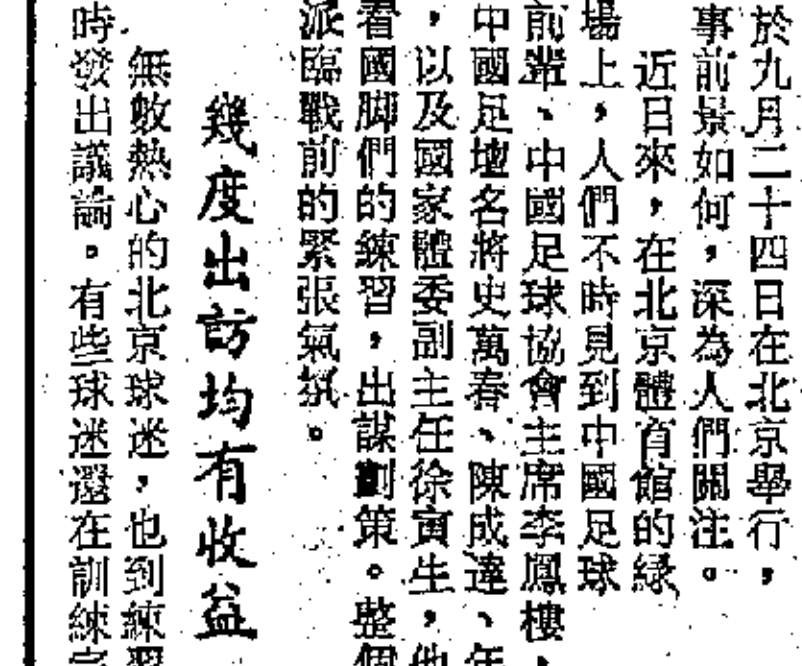 於九月二十四日在北京舉行，
事前景如何，深為人們關注。
近日來，在北京體育館的綠
場上，人們不時見到中國足球
前輩、中國足球協會主席李鳳樓、
中國足壇名將史萬春、陳成達、年
，以及國家體委副主任徐寅生，他
看國脚們的練習，出謀劃策。整個
派臨戰前的緊張氣氛。
幾度出訪均有收益
無數熱心的北京球迷，也到練習
時發出議論。有些球迷還在訓練完